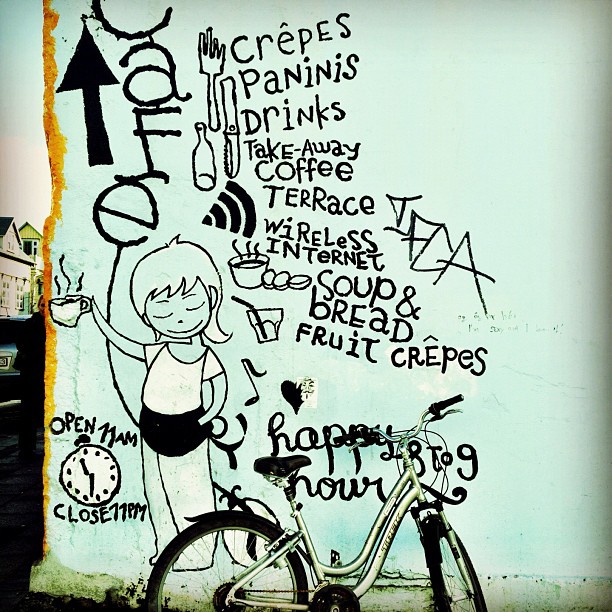 Cafe
CRÊPES
PANINIS
DRINKS
TAKE-AWAY
COFFEE
TERRACE
WIRELESS
INTERNET
SOUP &
BREAD
FRUIT CRÊPES
OPEN 11AM
CLOSE 11PM
happy
hour
8 to 9